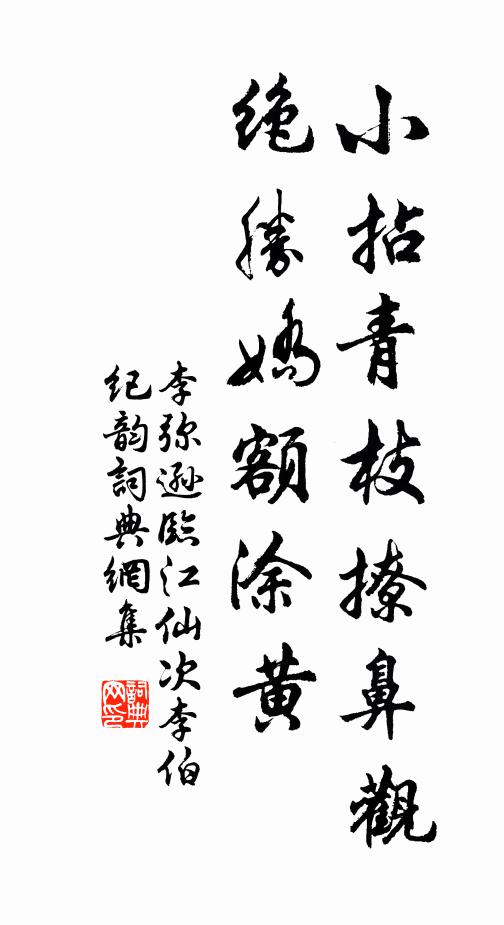 小拈青枝撩鼻觀
绝勝嬌額涂黃
李弥遜臨江仙次李伯
纪韵詞典網集
詞典
网印